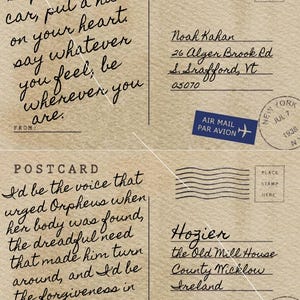 car, put a
on your heart.
say whatever
you feel, be
wherever you
are.
FROM:
Noah Kahan
26 Alger Brook Rd
S. Srafford, VT
05070
AIR MAIL
PAR AVION
NEW YORK
JUL 7
193
N
POSTCARD
I'd be the voice that
urged Orpheus when
her body was found,
the dreadful need
that made him turn
around, and I'd be
the forgiveness in
PLACE
STAMP
HERE
Hozier
the Old Mill House
County Wicklow
Ireland